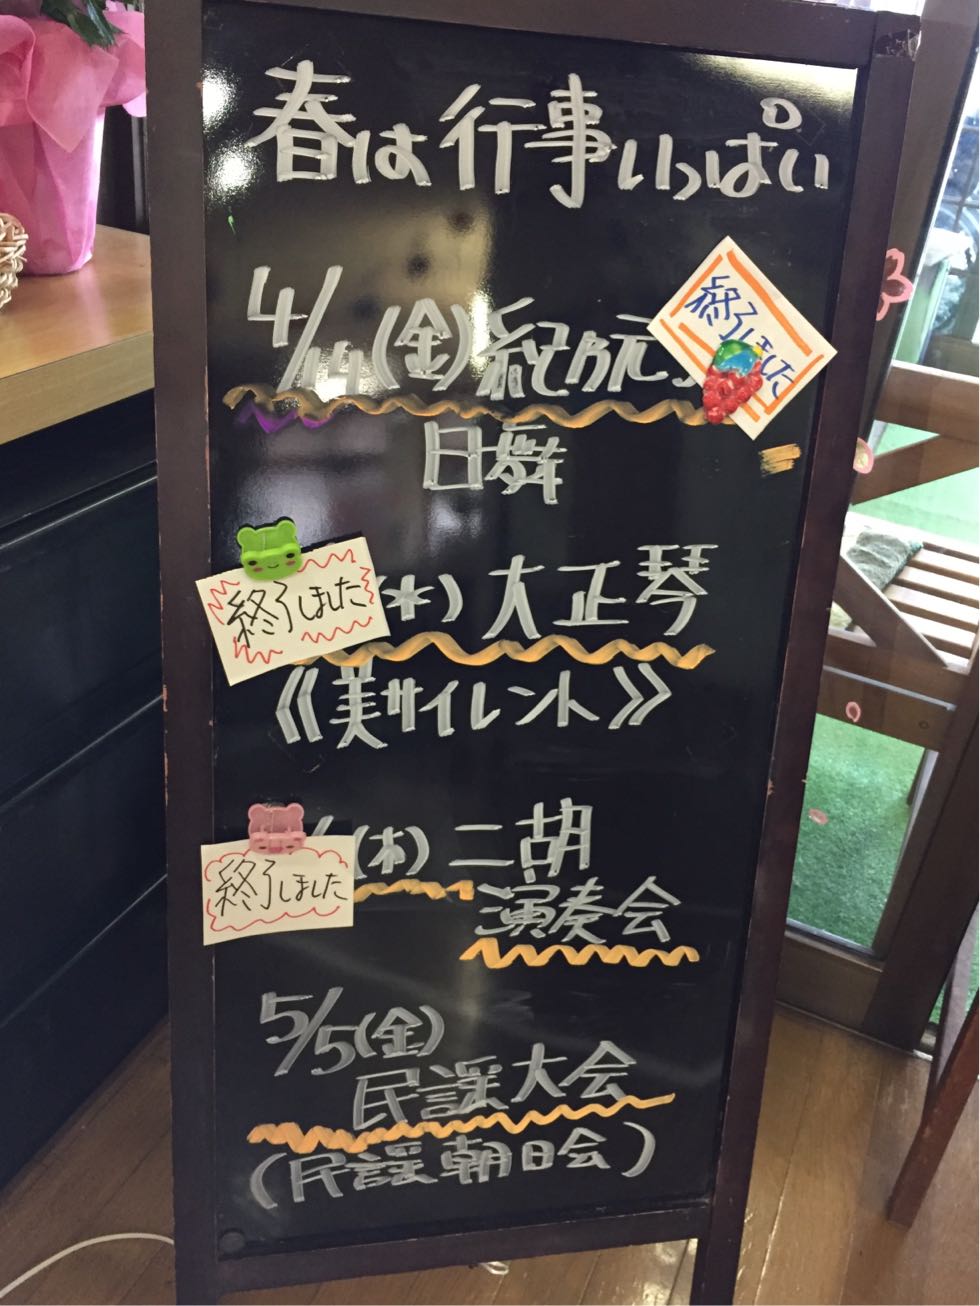 春は行事いっぱい
4/14(金)紀乃元
終了しました
日舞
終了しました
(木)大正琴
《美サイレント》
(木)二胡
終了しました
演奏会
5/5(金)
民謡大会
(民謡朝日会)